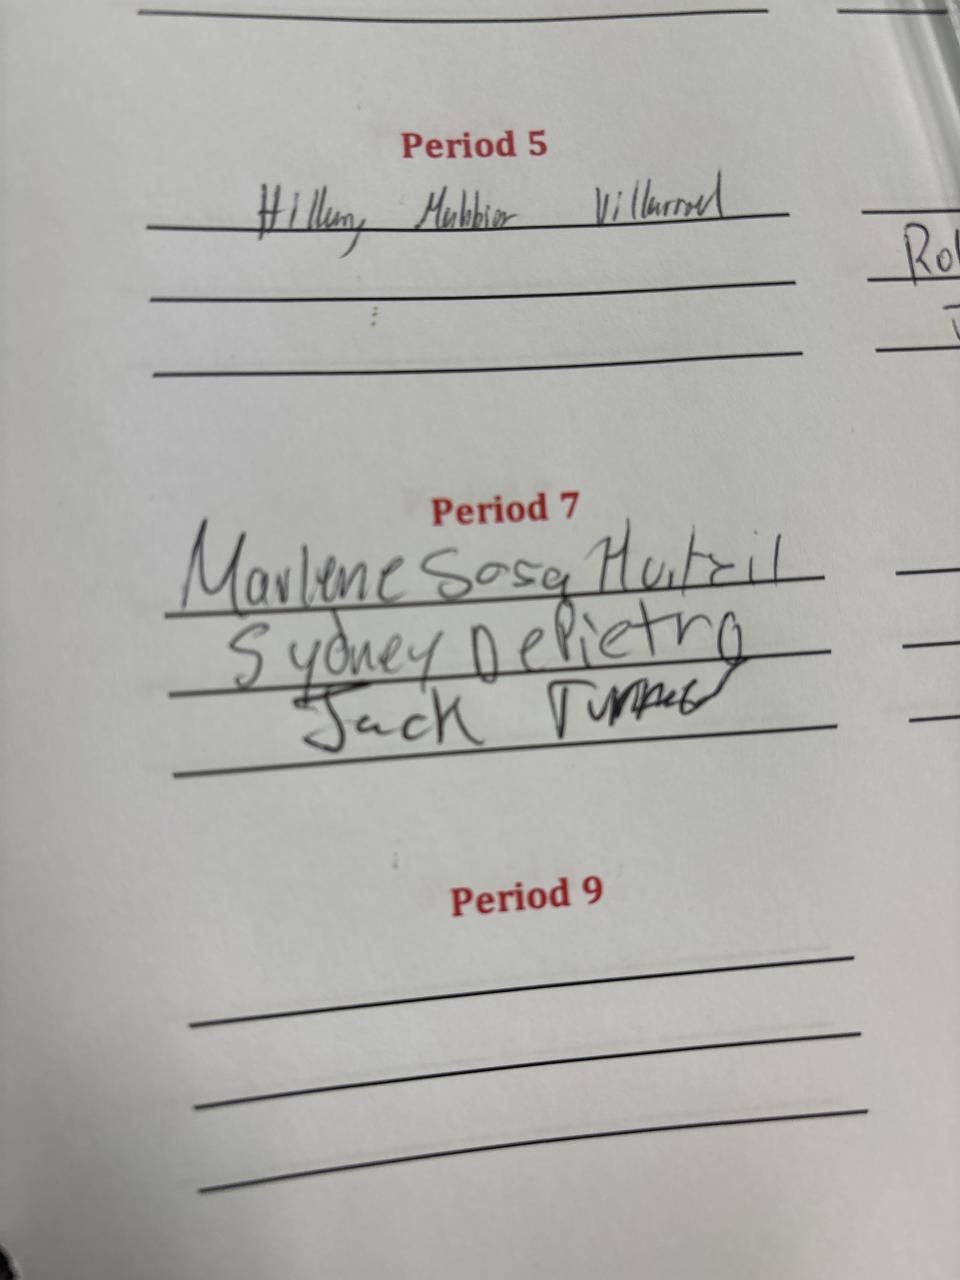 Period 5
Villarroel
Rol
Period 7
Marlene Sosa Huitzil
Sydney DePietro
Jack Turner
Period 9